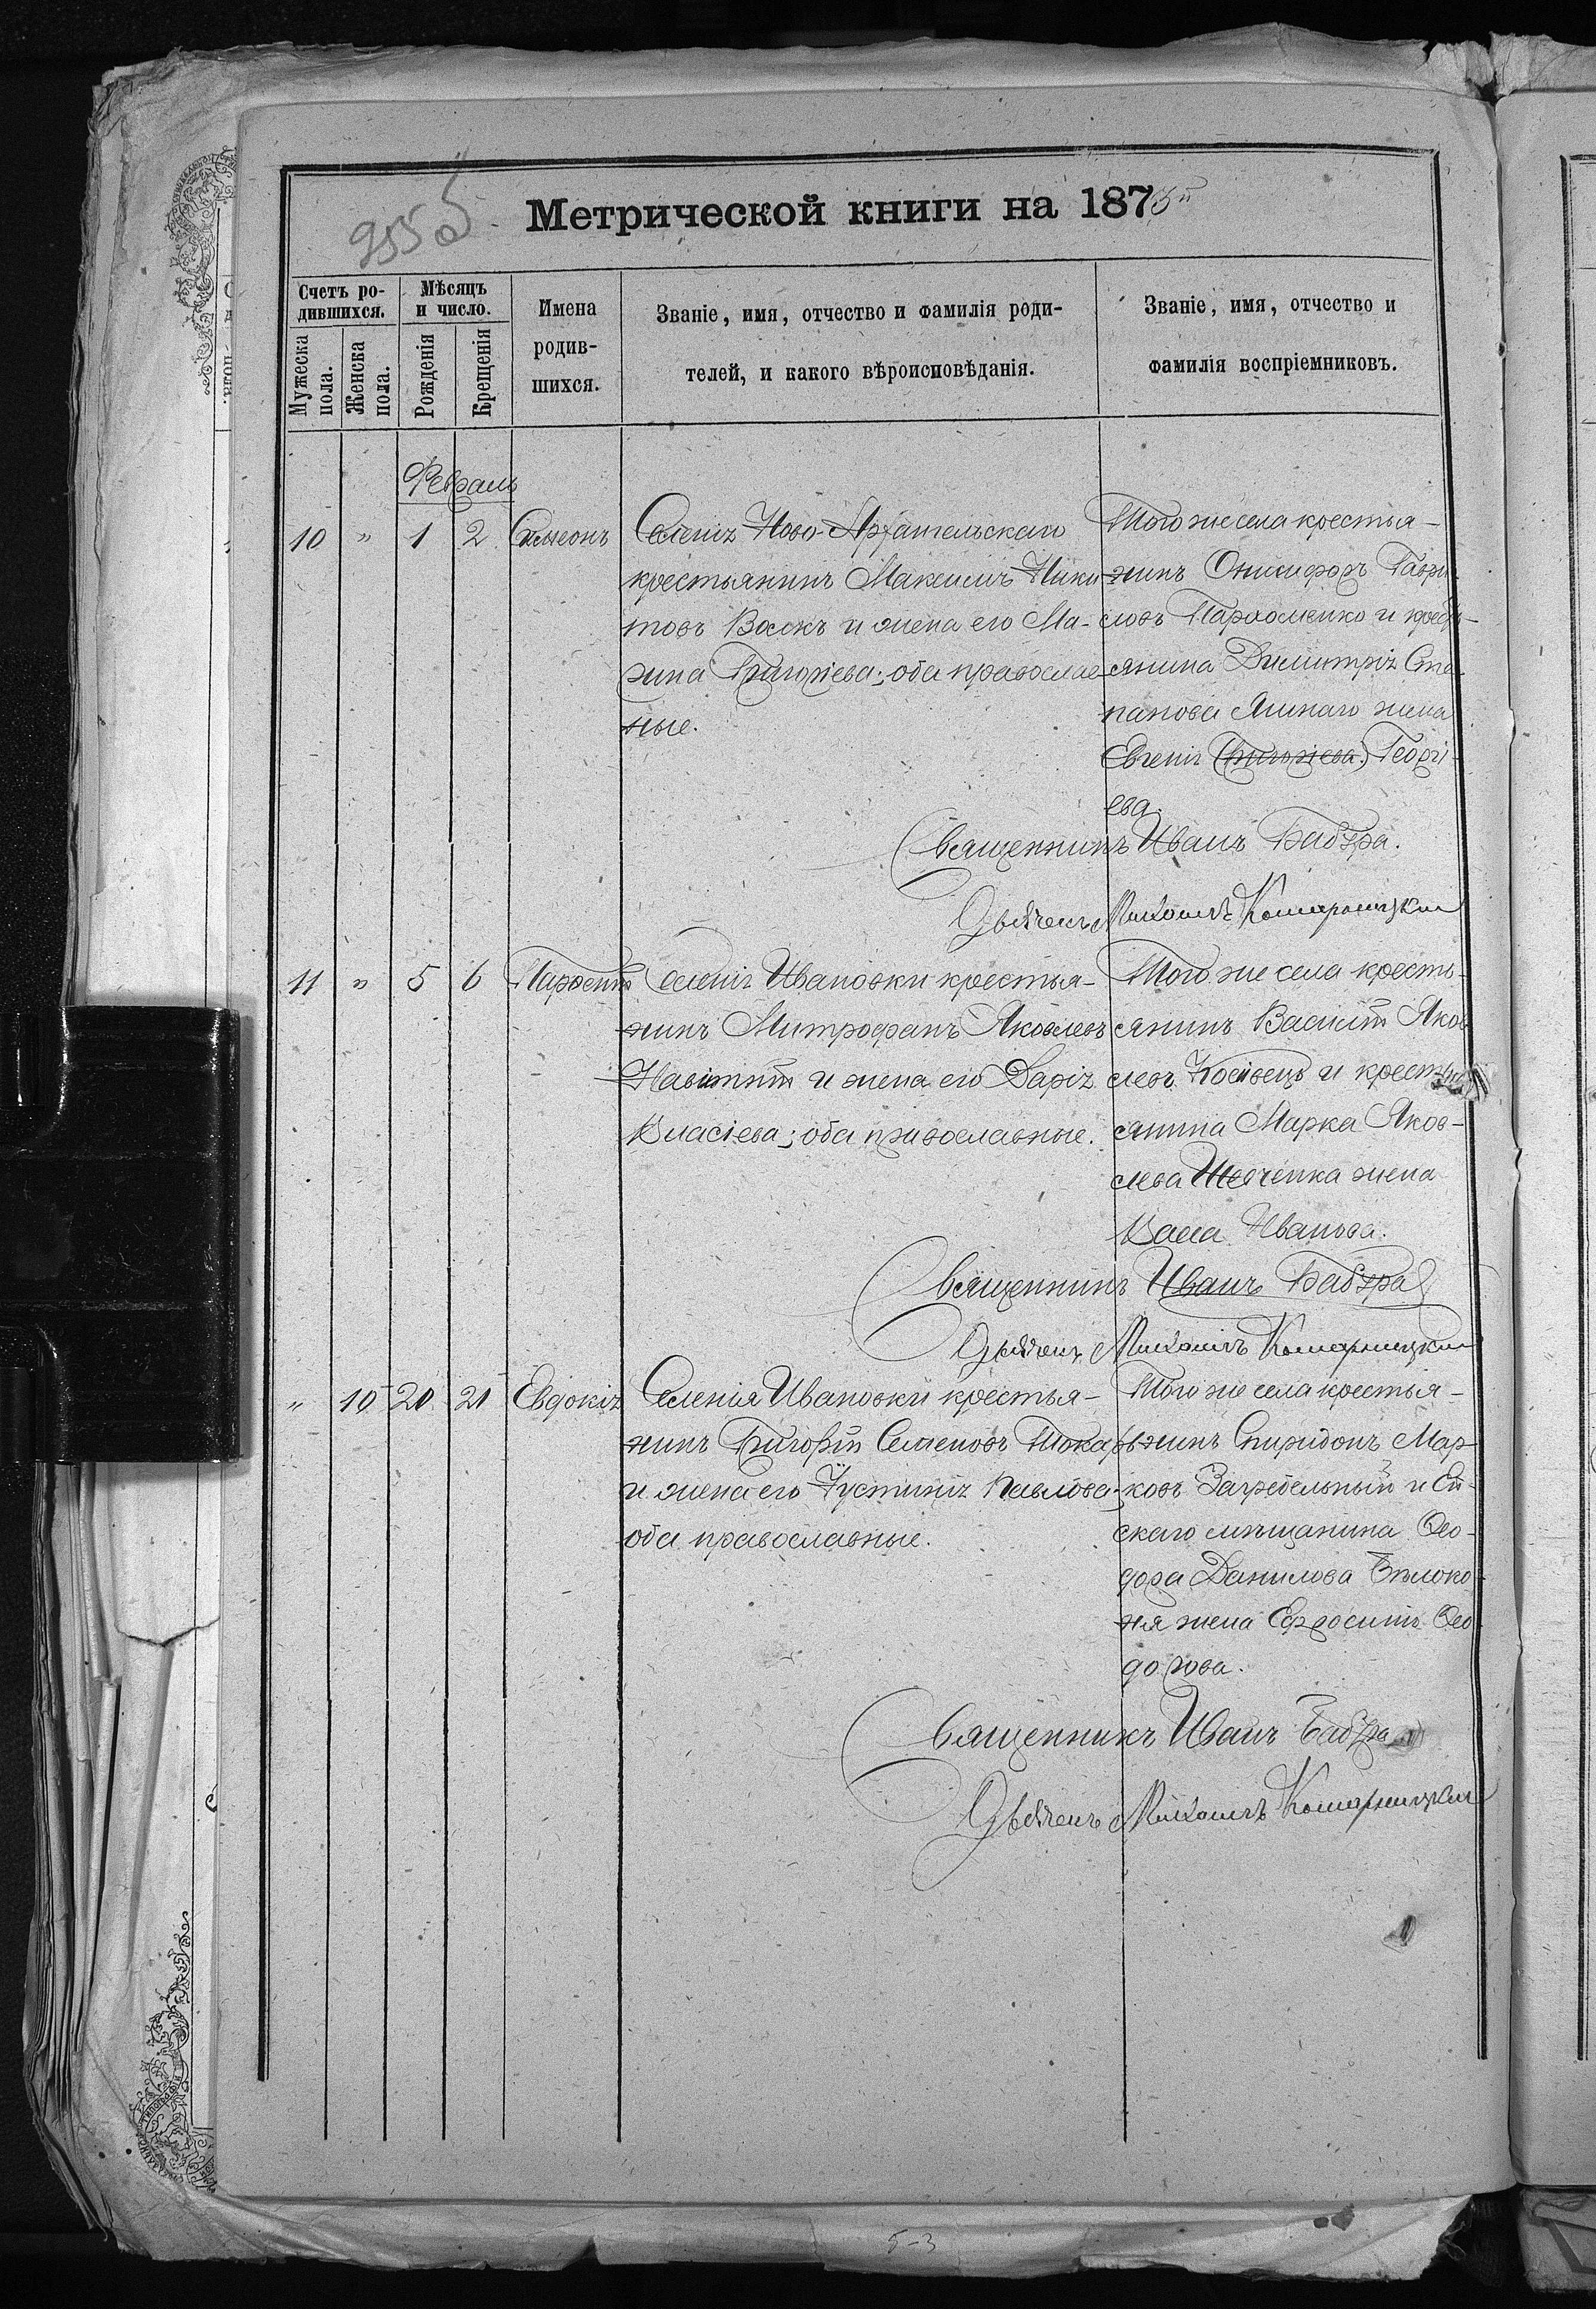 Метрической книги на 1875й
Счетъ ро-
дившихся.
Мужеска пола.
Женска пола.
Мѣсяцъ
и число.
Рожденія
Крещенія
Имена
родив-
шихся.
Званіе, имя, отчество и фамилія роди-
телей, и какого вѣроисповѣданія.
Званіе, имя, отчество и
фамилія воспріемниковъ.
Февраль
10 " 1 2 Симеонъ
Селенія Ново-
крестьянинъ Максимъ Ники-
товъ и жена его Ма-
рина Григоріева; оба православ-
ные.
Того же села крестья-
нинъ Онисифоръ Гаври-
ловъ Пархоменко и кресть-
янина Димитрія Сте-
панова жена
Евгенія (Григоріева.) Георгі-
ева.
Священникъ Иванъ Бабура.
Дьячекъ Михаилъ Комарницкій
11 " 5 6 Парѳеній
Селенія Ивановки крестья-
нинъ Митрофанъ Яковлевъ
и жена его Дарія
Власіева; оба православные.
Того же села кресть-
янинъ Василій Яков-
левъ Косовецъ и кресть-
янина Марка Яков-
лева Шевченка жена
Васса Иванова.
Священникъ Иванъ Бабура
Дьячекъ Михаилъ Комарницкій
" 10 20 21 Евдокія
Селенія Ивановки крестья-
нинъ Григорій Семеновъ Токарь
и жена его Іустинія Павлова;
оба православные.
Того же села крестья-
нинъ Спиридонъ Мар-
ковъ Загребельный и Ей-
скаго мѣщанина Ѳео-
дора Данилова Бѣлоко-
ня жена Ефросинія Ѳео-
дорова.
Священникъ Иванъ Бабура
Дьячекъ Михаилъ Комарницкій
5-3